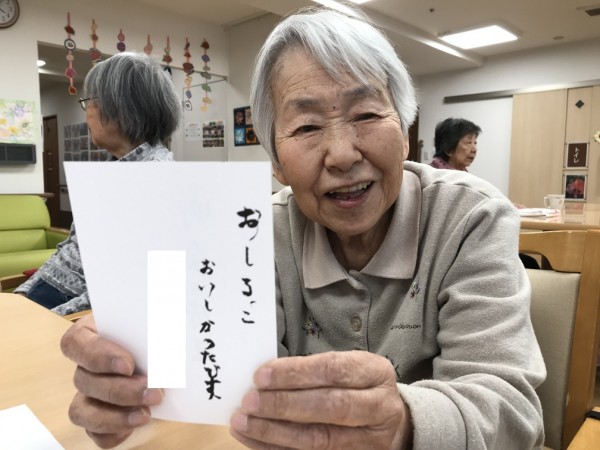 おしるこ
おいしかったです